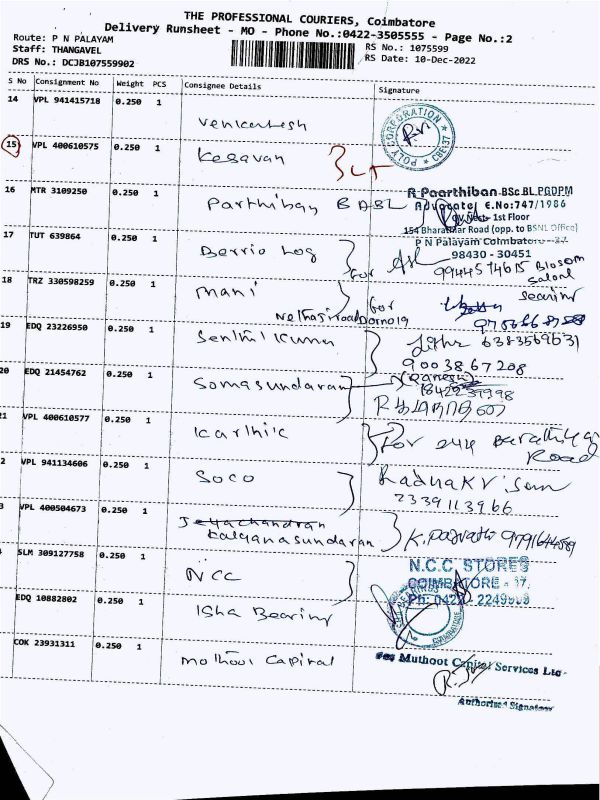 THE PROFESSIONAL COURIERS, Coimbatore
Delivery Runsheet - MO - Phone No.:0422-3505555 - Page No.:2
Route: P N PALAYAM
Staff: THANGAVEL
DRS No.: DCJB107559902
RS No.: 1075599
RS Date: 10-Dec-2022
S No Consignment No Weight PCS Consignee Details Signature
14 VPL 941415718 0.250 1 Venkatesh
POLY CORPORATION * CBE-37 *
15 VPL 400610575 0.250 1 Kesavan
16 MTR 3109250 0.250 1 Parthiban B A BL
R Paarthiban BSc BL PGDPM
Advocate E.No:747/1986
1st Floor
154 Bharathiar Road (opp. to BSNL Office)
P N Palayam Coimbatore-37
98430 - 30451
17 TUT 639864 0.250 1 Berrio Log
for
9944574615 Blosom
Salon
18 TRZ 330598259 0.250 1 Mani
Nethaji road Dorno 19
for
19 EDQ 23226950 0.250 1 Senthil Kumar
6383569631
90038 67208
20 EDQ 21454762 0.250 1 Somasundaran
(Ramesh)
1 VPL 400610577 0.250 1 Karthik
For 244 Barathiyar
Road
2 VPL 941134606 0.250 1 Soco
2339113966
3 VPL 400504673 0.250 1 Jeyachandran
Kalyanasundaran
K. Parvathi 9791644589
SLM 309127758 0.250 1 NCC
N.C.C. STORES
COIMBATORE - 37.
Ph: 0422 - 2249
EDQ 10882802 0.250 1 Isha Bearing
BEARINGS
COIMBATORE
COK 23931311 0.250 1 Mothoot Capiral
For Muthoot Capital Services Ltd
Authorised Signatory